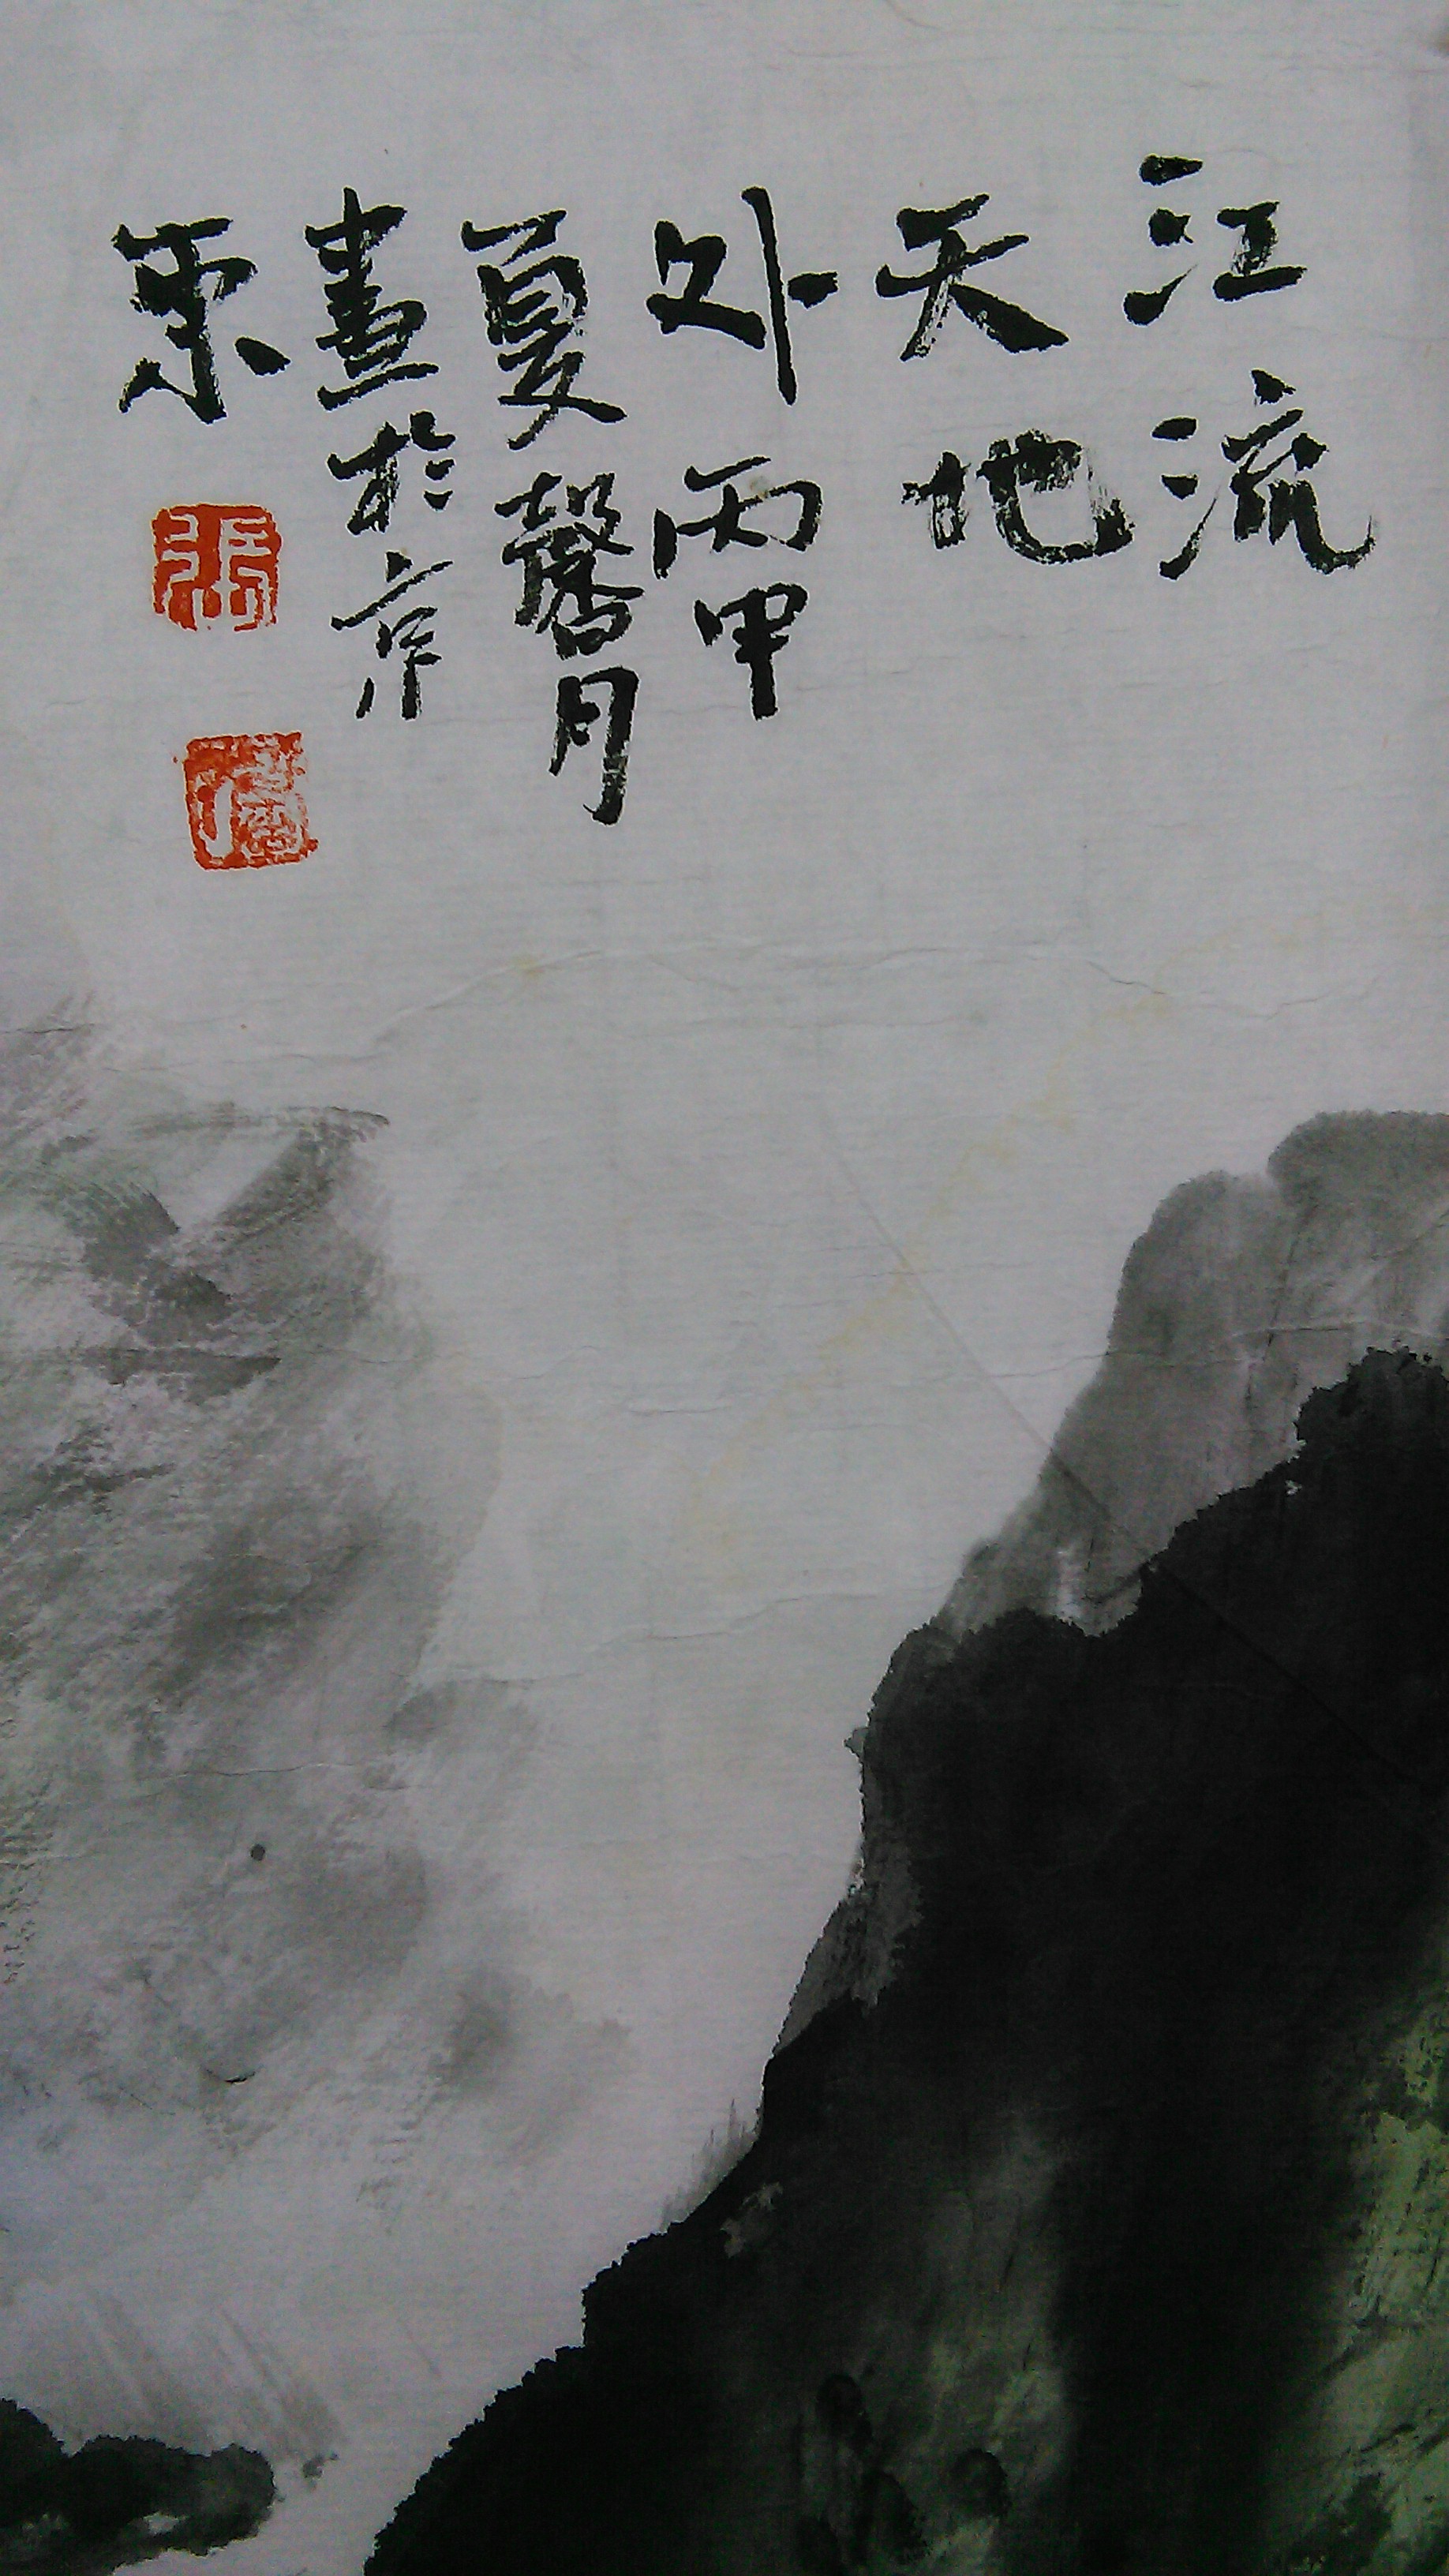 江流
天地
外丙申
夏馨月
畫於京
東